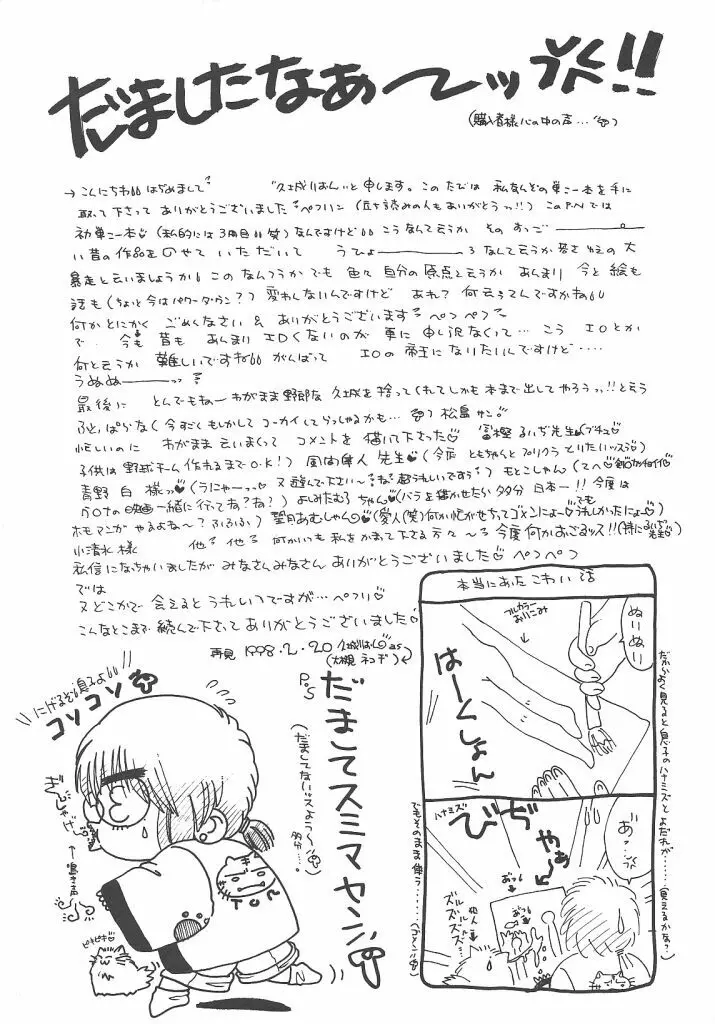 だましたなぁ〜ッ!!
(購入者様心の中の声…)
→こんにちわ はぢめまして "久城りおん"と申します。このたびは 私なんぞの単こ一本を手に
取って下さって ありがとうございました ペフリン (立ち読みの人もありがとうっ!!) このP.Nでは
初単こ一本 (私的には3冊目 笑) なんですけど こうなんて云うか そのすっご
い昔の作品を のせて いただいて うひょ る なんて云うか 若さゆえの大
暴走と云いましょうか このなんつうか でも 色々 自分の原点と云うか あんまり 今と絵も
話も (ちょっと今はパワーダウン?) 変わんないんですけど あれ? 何云ってんですかね
何かとにかく ごめんなさい & ありがとうございます ペコ ペコ
で 今も 昔も あんまり エロくないのが 更に 申し訳なくって… こう エロとか
何と云うか 難しいですね がんばって エロの帝王になりたいんですけど‥‥
うぬぬ――っっ
最後に とんでもねー わがまま野郎な 久城を拾ってくれてしかも本まで出してやろうっ!!と云う
ふとっぱらな (今すごくもしかして コーカイしてらっしゃるかも…) 松島サン
忙しいのに わがまま云いまくって コメントを 描いて下さった 冨樫るいぢ先生 (ブチュ
子供は 野球チーム作れるまでO.K!) 風間隼人先生 (今度 ともちゃんとプリクラとりたいッスう)
青野 白 様ッ (うにゃーっ 又遊んで下さい〜 ね 超うれしいですぅ) もとこしゃん (てへ
の映画一緒に行ってね?ね?) よしみたむろちゃん (バラを描かせたら多分 日本一!! 今度は
ホモマンガ やるよね〜? ふふふ) 望月あむしゃん (愛人(笑) 何か忙がせちってゴメンにょー でもうれしかったにょー)
小清水様 他 他 何かいつも私をかまって下さる方々 〜 今度何かおごるッス!! (特にるいぢ先生)
私信になっちゃいましたが みなさんみなさん ありがとうございました ペコペコ
では
又どこかで 会えると うれしいっですが… ペフリ
こんなとこまで 読んで下さって ありがとうございました
再見 1998.2.20 久城りおん as
(大槻 ネコヂ)
P.S
だましてスミマセン
(だましてないッスよう〜 多分‥‥。)
にげるぞ息子よ
コソコソ
←鳴き声
ピキピキ
TOM
本当にあった こわい話
フルカラー
おりこみ
ぬりぬり
はーくしょん
だから よく見ると 息子のハナミズと よだれが‥‥‥(見えるかな?)
ハナミズ
びぢゃぁー
あ?
おっ
おっ
ズルズルズルズルズズズ…
犯人
でもそのまま使う‥‥‥ (ゴメン)